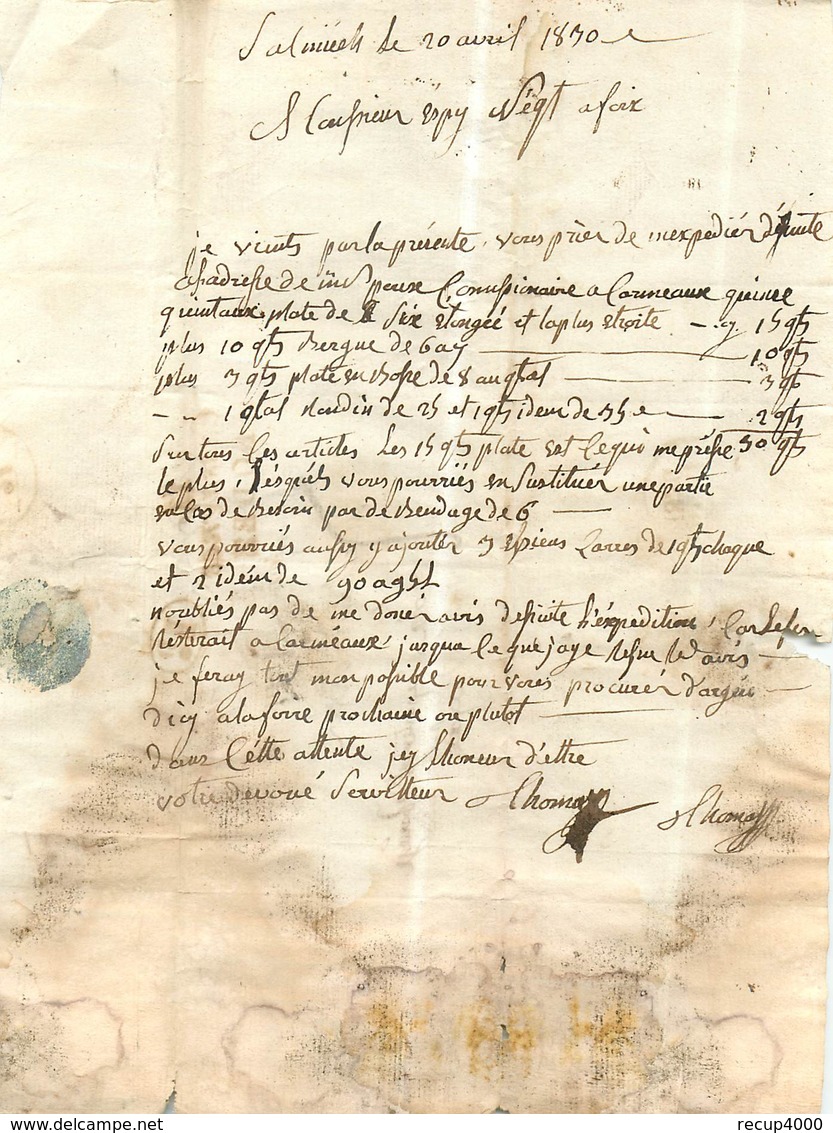 Salmiech le 20 avril 1830
Monsieur Espy Négt a foix
je vients par la présente, vous prier de mexpediér désuite
a ladresse de mr commissionaire a Carmeaux quinse
quintaux plate de Six élongée et la plus etroite 15 qts
plus 10 qts Vergue de 6 10 qts
plus 3 qts plate en de 8 au qtal 3 q
1 qtal Mandin de 25 et 1 qt idem de 35 2 qts
Sur tous les articles Les 15 qts plate est Ce qui me présse 30 qts
le plus, lésquéls vous pourriés en Sustituér une partie
en Cas de Besoin par de Bendage de 6
vous pourriés aussy y ajouter 3 Carres de 1 qt chaque
et 2 idem de 90 a
noubliés pas de me donér avis desuite L'éxpedition, Car le fer
résterait a Carmeaux, jusqua Ce que jaye avis
je feray tout mon possible pour vous procurér
dicy a la foire prochaine ou plutot
dans Cétte attente jey Lhoneur d'ettre
votre devoué Servitteur Thomas
Thomas
www.delcampe.net
recup4000